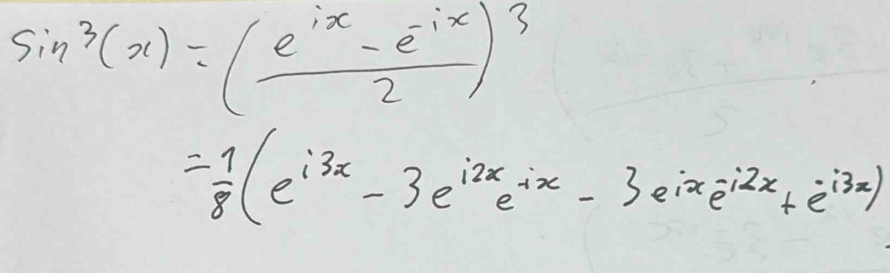 sin³(x) = ((e^{ix} - e^{-ix})/2)³
= 1/8 (e^{i3x} - 3e^{i2x}e^{-ix} - 3e^{ix}e^{-i2x} + e^{-i3x})